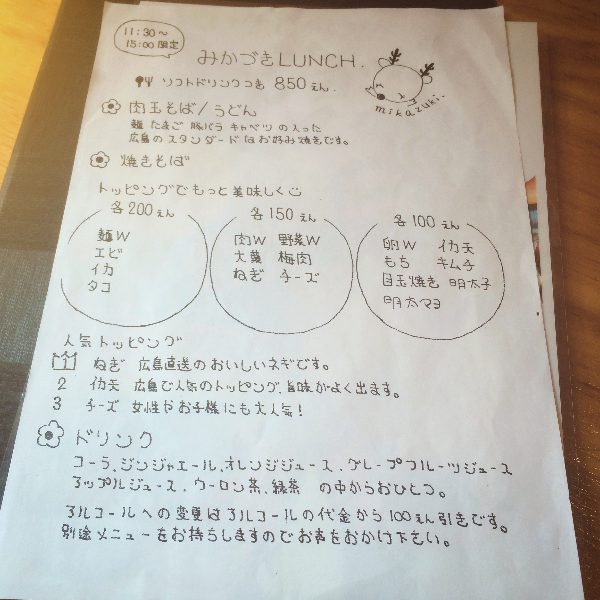 11:30〜
15:00限定
みかづきLUNCH.
ソフトドリンクつき 850えん.
mikazuki.
肉玉そば/うどん
麺 たまご 豚バラ キャベツ の入った
広島のスタンダードはお好み焼きです。
焼きそば
トッピングでもっと美味しく
各200えん
麺W
エビ
イカ
タコ
各150えん
肉W 野菜W
大葉 梅肉
ねぎ チーズ
各100えん
卵W イカ天
もち キムチ
目玉焼き 明太子
明太マヨ
人気トッピング
1 ねぎ 広島直送のおいしいネギです。
2 イカ天 広島で人気のトッピング、旨味がよく出ます。
3 チーズ 女性やお子様にも大人気!
ドリンク
コーラ、ジンジャエール、オレンジジュース、グレープフルーツジュース
アップルジュース、ウーロン茶、緑茶 の中からおひとつ。
アルコールへの変更はアルコールの代金から100えん引きです。
別途メニューをお持ちしますのでお声をおかけ下さい。